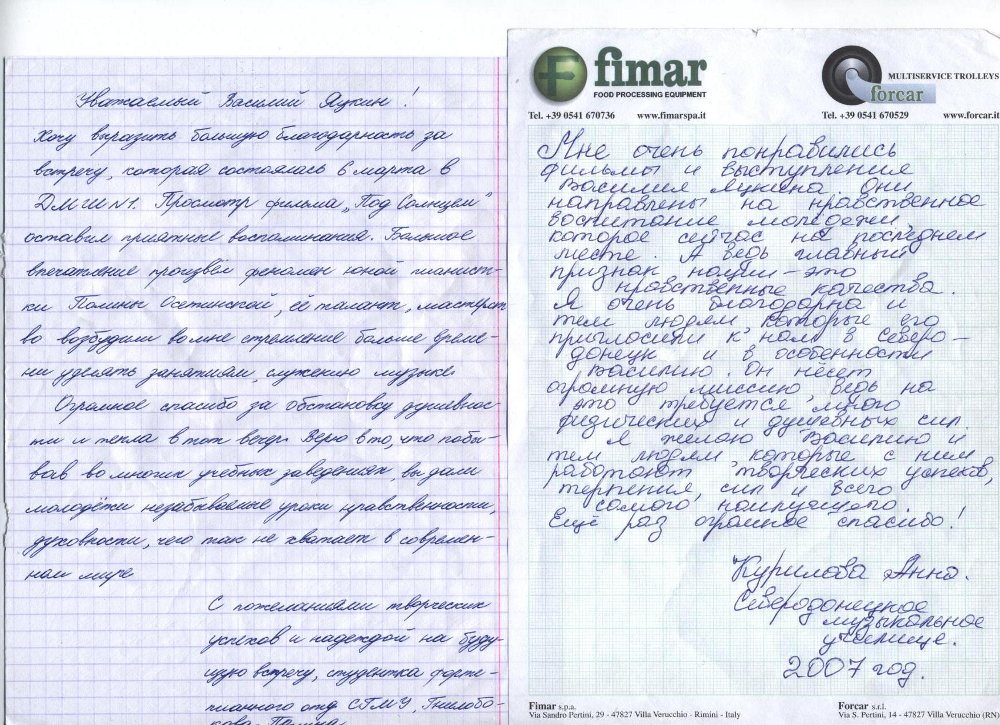 Уважаемый Василий Лукин!
Хочу выразить большую благодарность за
встречу, которая состоялась 6 марта в
ДМШ №1. Просмотр фильма „Под Солнцем"
оставил приятные воспоминания. Большое
впечатление произвёл феномен юной пианист-
ки Полины Осетинской, её талант, мастерст
во возбудили во мне стремление больше време-
ни уделять занятиям, служению музыке.
Огромное спасибо за обстановку душевнос-
ти и тепла в тот вечер. Верю в то, что побы-
вав во многих учебных заведениях, вы дали
молодёжи незабываемые уроки нравственности,
духовности, чего так не хватает в современ-
ном мире
С пожеланиями творческих
успехов и надеждой на буду-
щую встречу, студентка форте-
пианного отд. СГМУ,
fimar
FOOD PROCESSING EQUIPMENT
Tel. +39 0541 670736 www.fimarspa.it
MULTISERVICE TROLLEYS
forcar
Tel. +39 0541 670529 www.forcar.it
Мне очень понравились
фильмы и выступления
Василия Лукина. Они
направлены на нравственное
воспитание молодежи
которое сейчас на последнем
месте. А ведь главный
признак нации – это
нравственные качества.
Я очень благодарна и
тем людям, которые его
пригласили к нам в Северо-
донецк и в особенности
Василию. Он несёт
огромную миссию, ведь на
это требуется много
физических и душевных сил.
Я желаю Василию и
тем людям которые с ним
работают, творческих успехов,
терпения, сил и всего
самого наилучшего.
Ещё раз огромное спасибо!
Курилова Анна.
Северодонецкое
музыкальное
училище.
2007 год.
Fimar s.p.a.
Via Sandro Pertini, 29 - 47827 Villa Verucchio - Rimini - Italy
Forcar s.r.l.
Via S. Pertini, 14 - 47827 Villa Verucchio (RN)